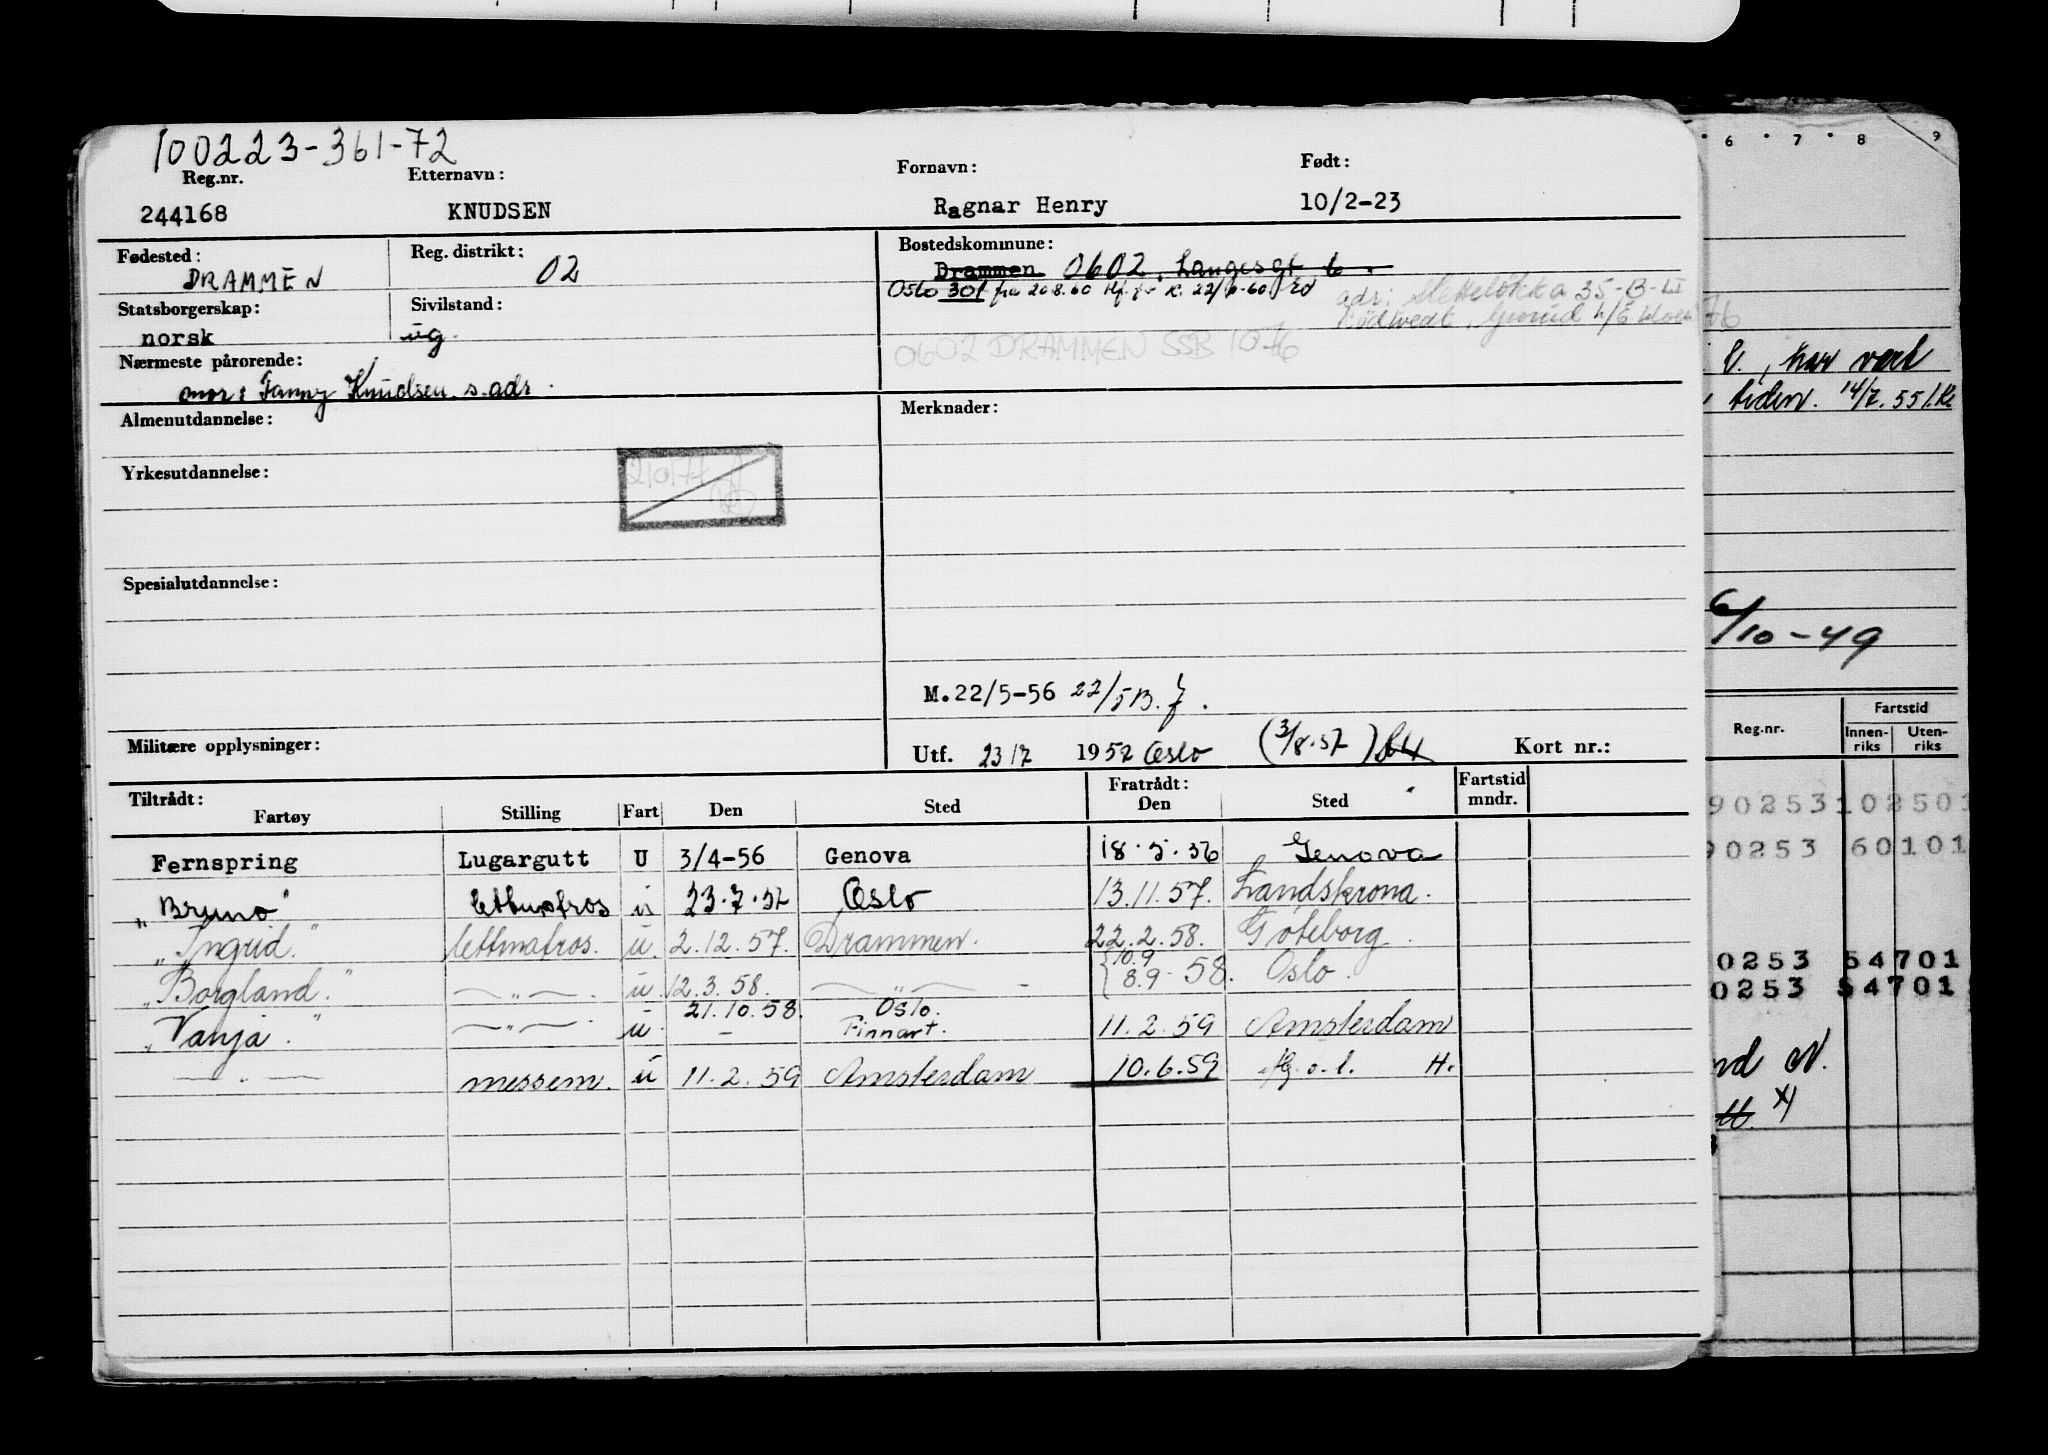 100223-361-72
Reg.nr. Etternavn: Fornavn: Født:
244168 KNUDSEN Ragnar Henry 10/2-23
Fødested: Reg. distrikt: Bostedskommune:
DRAMMEN 02 Drammen 0602, Langesgt 6.
Oslo 301 fra 20.8.60
Statsborgerskap: Sivilstand:
norsk ug.
adr: 35-B-
0602 DRAMMEN SSB 10-76
Nærmeste pårørende:
mor: Fanny Knudsen s. adr.
Almenutdannelse: Merknader:
Yrkesutdannelse:
Spesialutdannelse:
M.22/5-56 22/5 B.
Militære opplysninger: Utf. 23/7 1957 Oslo (3/8.57) Kort nr.:
Tiltrådt: Fratrådt: Fartstid
Fartøy Stilling Fart Den Sted Den Sted mndr.
Fernspring Lugargutt U 3/4-56 Genova 18.5.56 Genova
"Bruno" lettmatros u 23.7.57 Oslo 13.11.57. Landskrona.
"Ingrid." lettmatros. u. 2.12.57. Drammen. 22.2.58. Göteborg.
"Borgland." —"— u. 12.3.58. —"— 10.9 8.9-58. Oslo.
"Vanja." —"— u. 21.10.58. Oslo. Finnart. 11.2.59 Amsterdam
—"— messem. u 11.2.59 Amsterdam 10.6.59 o.l. H.
6 7 8 9
, har vært
tiden. 14/7.55
6/10-49
Reg.nr. Fartstid
Innen-riks Uten-riks
90253 102501
90253 60101
0253 54701
0253 54701